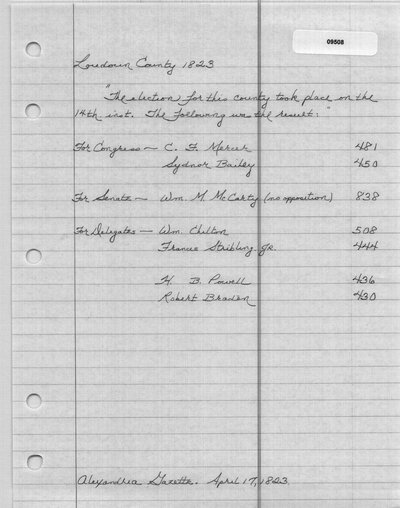 09508
Loudoun County 1823
"The election for this county took place on the
14th inst. The following was the result:"
For Congress — C. F. Mercer 481
Sydnor Bailey 450
For Senate — Wm. M. McCarty (no opposition) 838
For Delegates — Wm. Chilton 508
Francis Stribling Jr. 444
H. B. Powell 436
Robert Braden 430
Alexandria Gazette. April 17, 1823